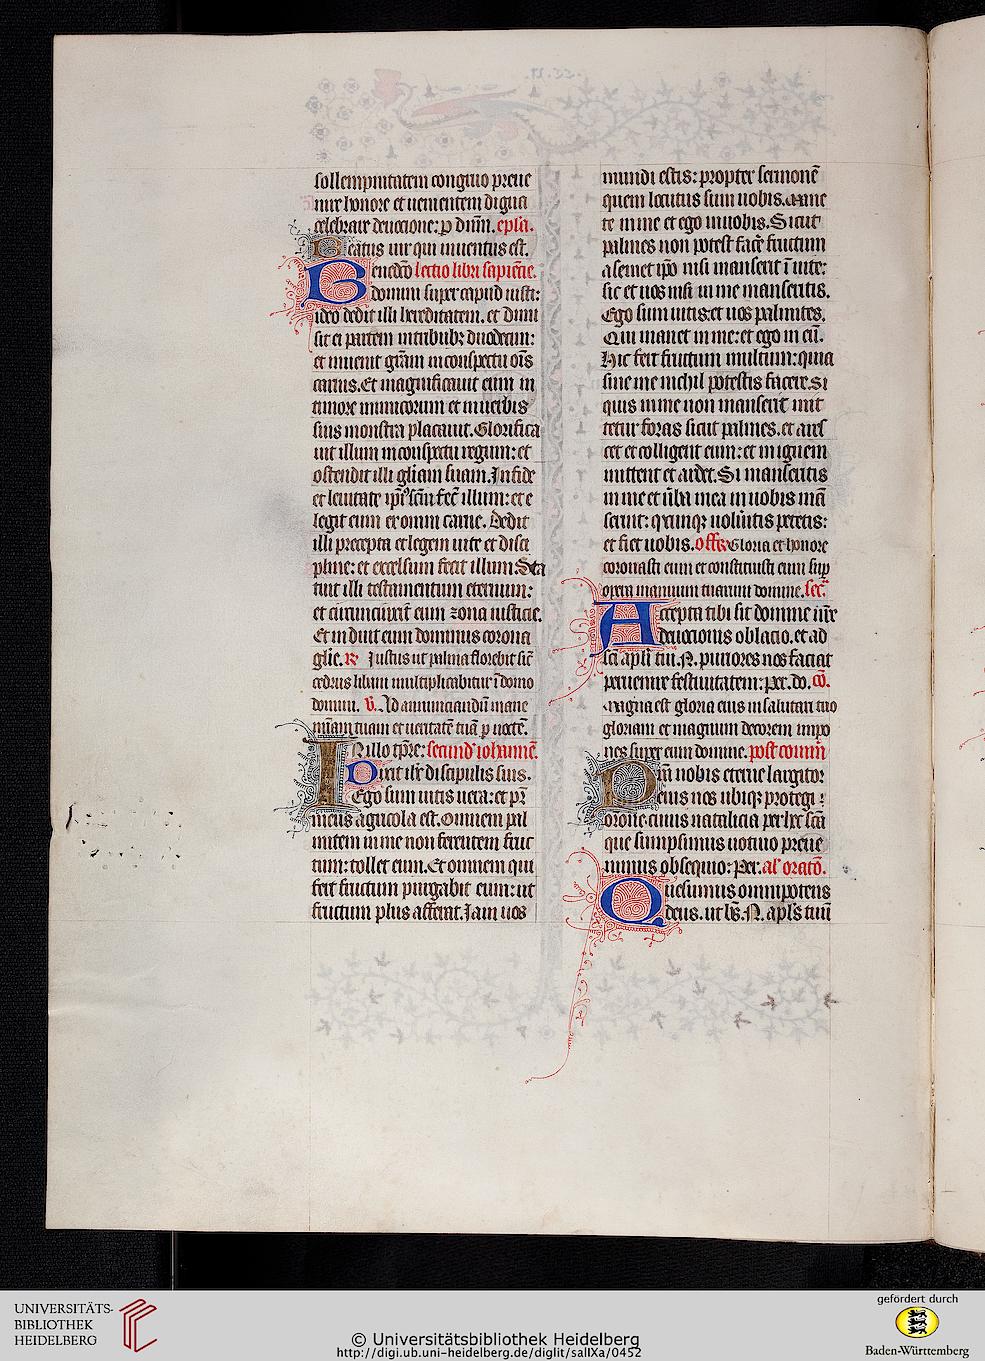 sollempnitatem congruo preue
nire honore et uenientem digna
celebrare deuocione: p dnm̄. ep̄la.
Beatus uir qui inuentus est.
Benedc̄o lectio libri sapienc̄ie.
domini super capud iusti:
ideo dedit illi hereditatem. et diui
sit ei partem in tribubꝫ duodecim:
et inuenit grām in conspectu oīs
carnis. Et magnificauit eum in
timore inimicorum et in uerbis
suis monstra placauit. Glorifica
uit illum in conspectu regum: et
ostendit illi gliam suam. In fide
et leuitate ip̄i⁹ scm̄ fec̄ illum: et e
legit eum ex omni carne. Dedit
illi precepta et legem uite et disci
pline: et excelsum fecit illum: Sta
tuit illi testamentum eternum:
et circumcinxit eum zona iusticie.
Et induit eum dominus corona
glīe. R Iustus ut palma florebit sic̄
cedrus libani multiplicabitur ī domo
domini. V. Ad annunciandū mane
mīam tuam et ueritatē tuā p noctē.
IN illo tp̄re: secund' iohannē.
Dixit ih̄c discipulis suis.
Ego sum uitis uera: et pr̄
meus agricola est. Omnem pal
mitem in me non ferentem fruc
tum: tollet eum. Et omnem qui
fert fructum purgabit eum: ut
fructum plus afferat. Iam uos
mundi estis: propter sermonē
quem locutus sum uobis. Mane
te in me et ego in uobis. Sicut
palmes non potest facē fructum
a semet ip̄o nisi manserit ī uite:
sic et uos nisi in me manseritis.
Ego sum uitis: et uos palmites.
Qui manet in me: et ego in eū.
Hic fert fructum multum: quia
sine me nichil potestis facere. Si
quis in me non manserit mit
tetur foras sicut palmes. et ares
cet et colligent eum: et in ignem
mittent et ardet. Si manseritis
in me et ūba mea in uobis man̄
serint: qcumqꝫ uolūitis petetis:
et fiet uobis. offr̄ Gloria et honore
coronasti eum et constituisti eum sup̄
opera manuum tuarum domine. sec̄.
Accepta tibi sit domine nr̄e
deuocionis oblacio. et ad
sc̄i apl̄i tui. N. puriores nos faciat
peruenire festiuitatem: per. do. cō.
Magna est gloria eius in salutari tuo
gloriam et magnum decorem impo
nes super eum domine. post comm̄
Pm̄ nobis eterne largitor
eius nos ubiqꝫ protegi:
oroīe. cuius natalicia per hec sc̄a
que sumpsimus uotiuo preue
nimus obsequio: Per. al' oratō.
Quesumus omnipotens
deus. ut b̄s. N. apl̄s tuū
UNIVERSITÄTS-
BIBLIOTHEK
HEIDELBERG
© Universitätsbibliothek Heidelberg
http://digi.ub.uni-heidelberg.de/diglit/salIXa/0452
gefördert durch
Baden-Württemberg